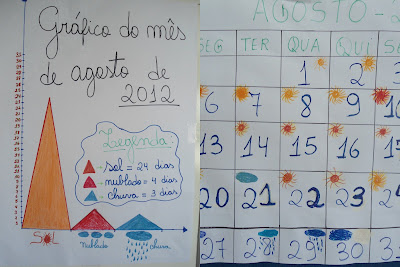 Gráfico do mês
de agosto de
2012
Legenda:
- sol = 24 dias
- nublado = 4 dias
- chuva = 3 dias
SOL
nublado
chuva
AGOSTO - 2
SEG TER QUA QUI S
1 2 3
6 7 8 9 10
13 14 15 16 17
20 21 22 23 24
27 28 29 30 3